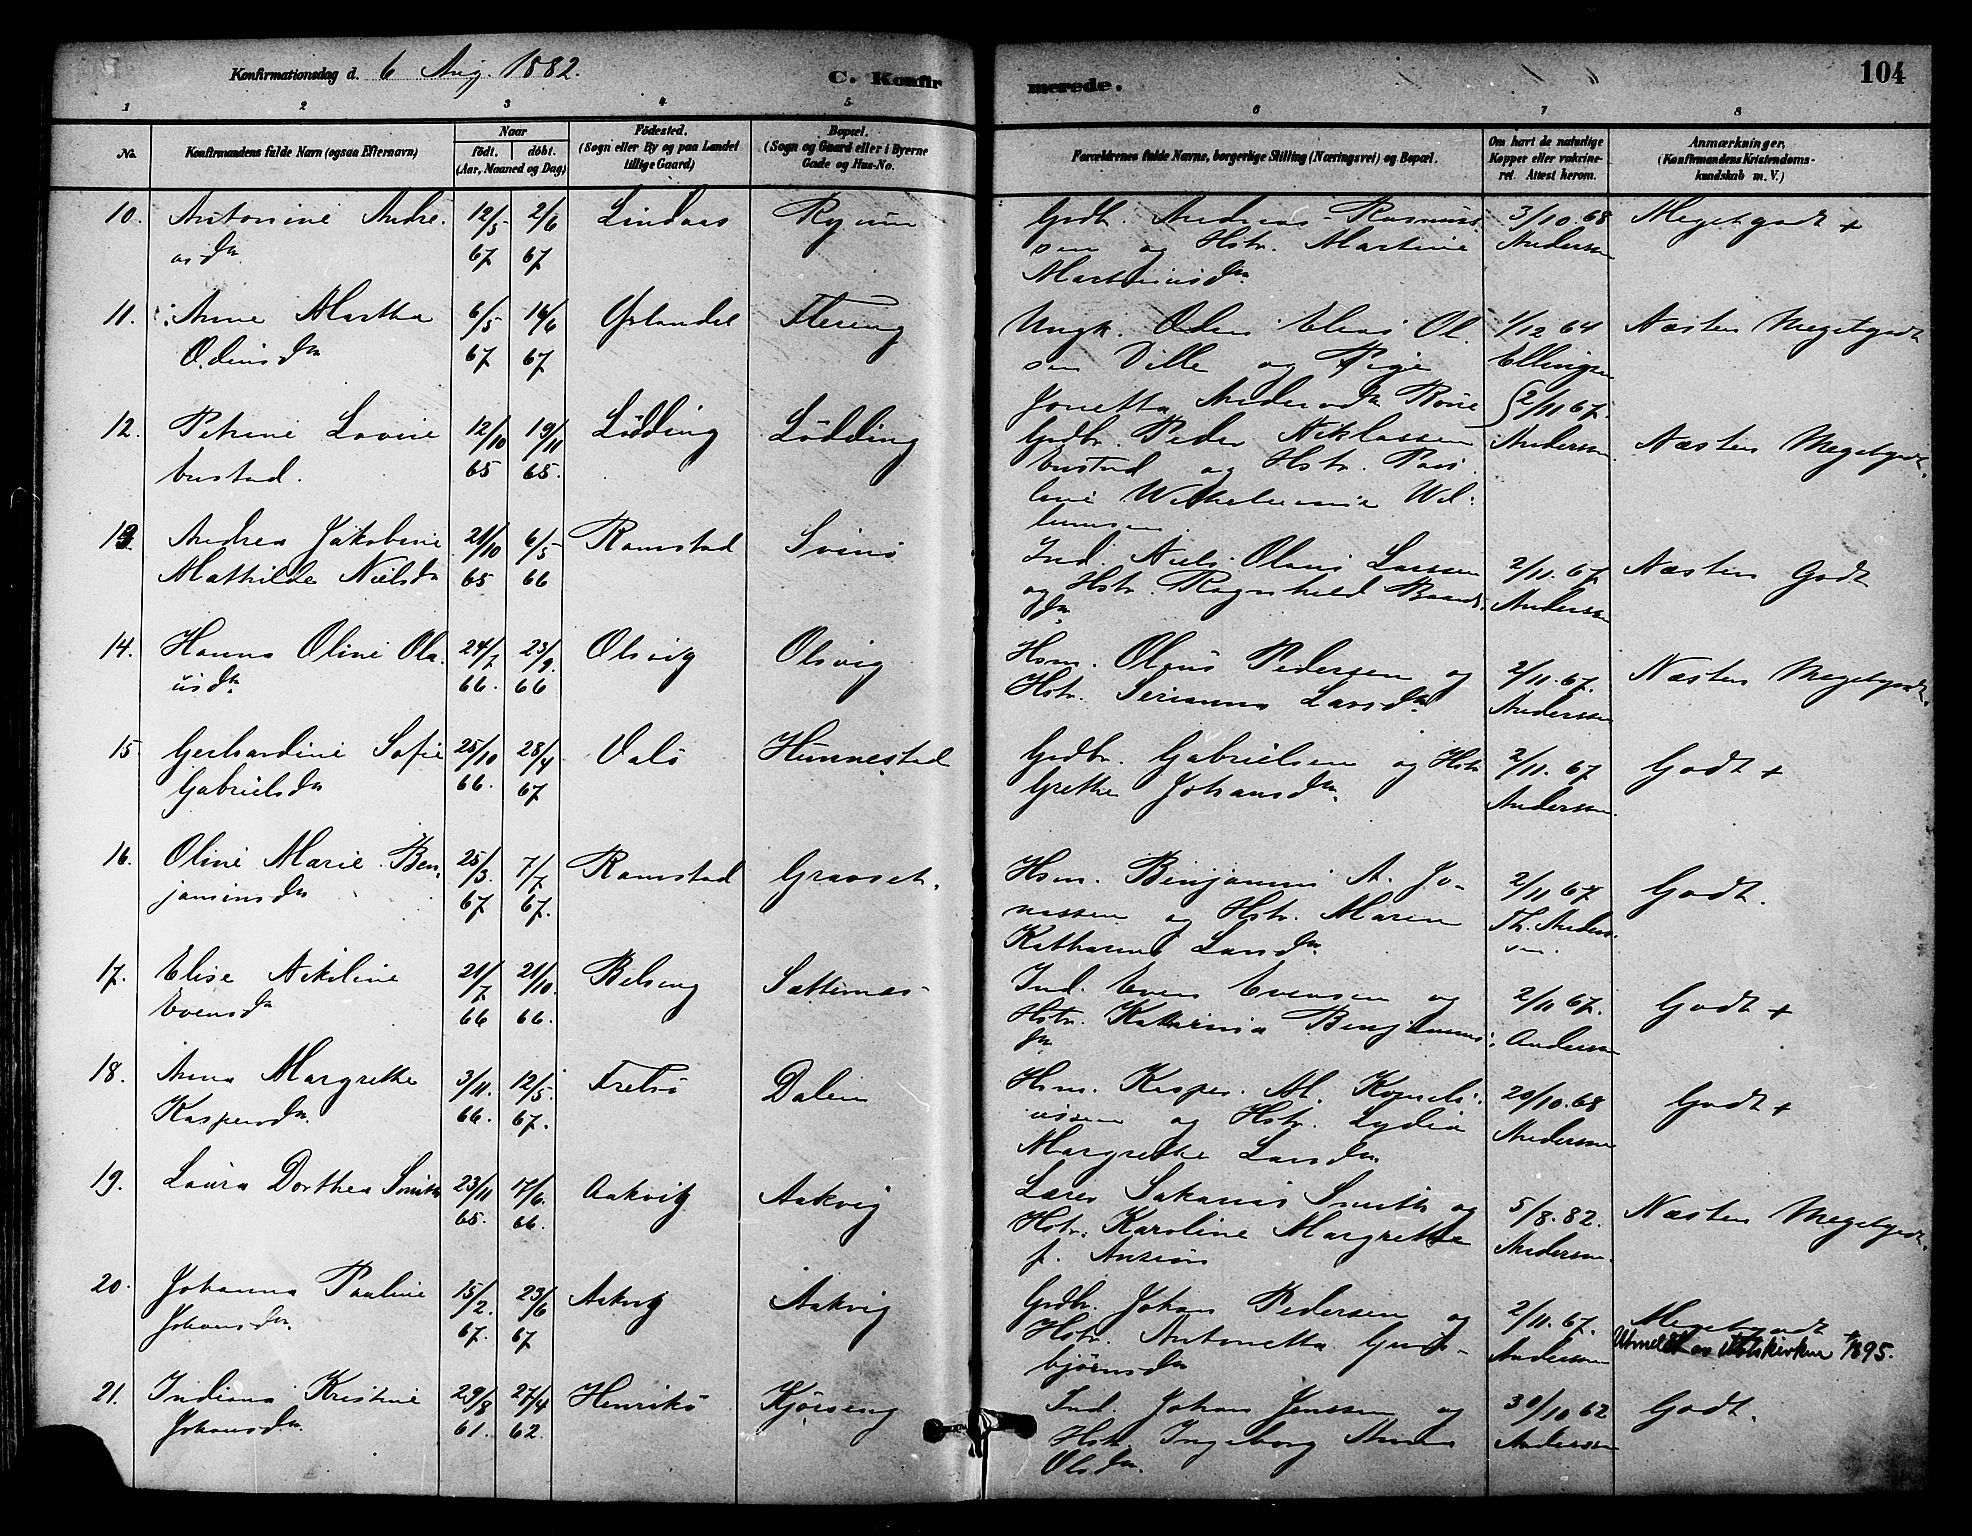 Konfirmationsdag d. 6 Aug. 1882.
C. Konfirmerede.
104
1 2 3 4 5 6 7 8
No.
Konfirmandens fulde Navn (ogsaa Efternavn)
Naar
födt. döbt.
(Aar, Maaned og Dag)
Födested.
(Sogn eller By og paa Landet
tillige Gaard)
Bopæl.
(Sogn og Gaard eller i Byerne
Gade og Hus-No.
Forældrenes fulde Navne, borgerlige Stilling (Næringsvei) og Bopæl.
Om havt de naturlige
Kopper eller vakcine-
ret. Attest herom.
Anmærkninger.
(Konfirmandens Kristendoms-
kundskab m. V.)
10. Antonine Andre- 12/5 2/6 Lindaas Ryum Gdbr. Andreas Rasmus- 3/10 68 Megetgodt +
asdr. 67 67 sen og Hstr. Martine Andersen
Martinusdr.
11. Anne Martha 6/5 16/6 Ørlandet Flesing Ungk. Odin Elias Ol- 1/12 64 Næsten Megetgodt
Odinsdr 67 67 sen Ville og Pige Ellingsen
Jonetta Andersdr 2/11 67.
12. Petrine Lovise 12/10 19/11 Lödding Lödding Gdbr. Peder Niklassen Andersen Næsten Megetgodt.
bustad. 65 65. bustad og Hstr. Pau-
line Wilhelmine Wil-
lumsen
13 Andrea Jakobine 21/10 6/5 Ramstad Svinö Ind. Niels Olaus Larsen 2/11. 67. Næsten Godt
Mathilde Nielsdr 65 66 og Hstr. Ragnhild Andersen
dr.
14. Hanna Oline Ola- 24/7 23/9. Olsvig Olsvig Hsm. Olaus Pedersen og 2/11. 67. Næsten Megetgodt.
usdr. 66. 66 Hstr. Serianna Larsdr. Andersen
15 Gerhardine Sofie 25/10 28/4 Valö Hunnestad Gdbr. Gabrielsen og Hstr 2/11. 67 Godt +
Gabrielsdr 66. 67 Grethe Johansdr. Andersen
16. Oline Marie Ben- 25/3. 7/7 Ramstad Graaset. Hsm. Benjamin A. Jo- 2/11 67 Godt.
jaminsdr 67 67. nassen og Hstr. Maren Th. Anders-
Katharina Larsdr. en
17. Elise Nikoline 21/7 21/10. Belseng Sætternes Ind. Even Evensen og 2/11 67. Godt +
Evensdr 66 66. Hstr. Katarina Benjamins- Andersen
dr
18. Anna Margrethe 3/11. 12/5. Fretsö Dalen Hsm. Kasper M. Korneli- 20/10. 68 Godt +
Kaspersdr. 66. 67. ussen og Hstr. Lydia Andersen
Margrethe Larsdr
19. Laura Dorthea Smith 23/11 17/6. Aakvig Aakvig Lærer Sakarias Smith og 5/8. 82. Næsten Megetgodt.
65. 66. Hstr. Karoline Margrethe Andersen.
f. Anzion
20. Johanna Pauline 15/2. 23/6 Aakvig Aakvig Gdbr. Johan Pedersen og 2/11. 67. Megetgodt
Johansdr. 67. 67 Hstr. Antonetta Gun- Andersen Utmeldt av statskirken 1895.
bjørnsdr
21. Indiana Kristine 29/8 27/4 Henrikö Kjörseng Ind. Johan Jenssen og 30/10 62 Godt.
Johansdr. 61. 62. Hstr Ingeborg Anna Andersen
Olsdr.